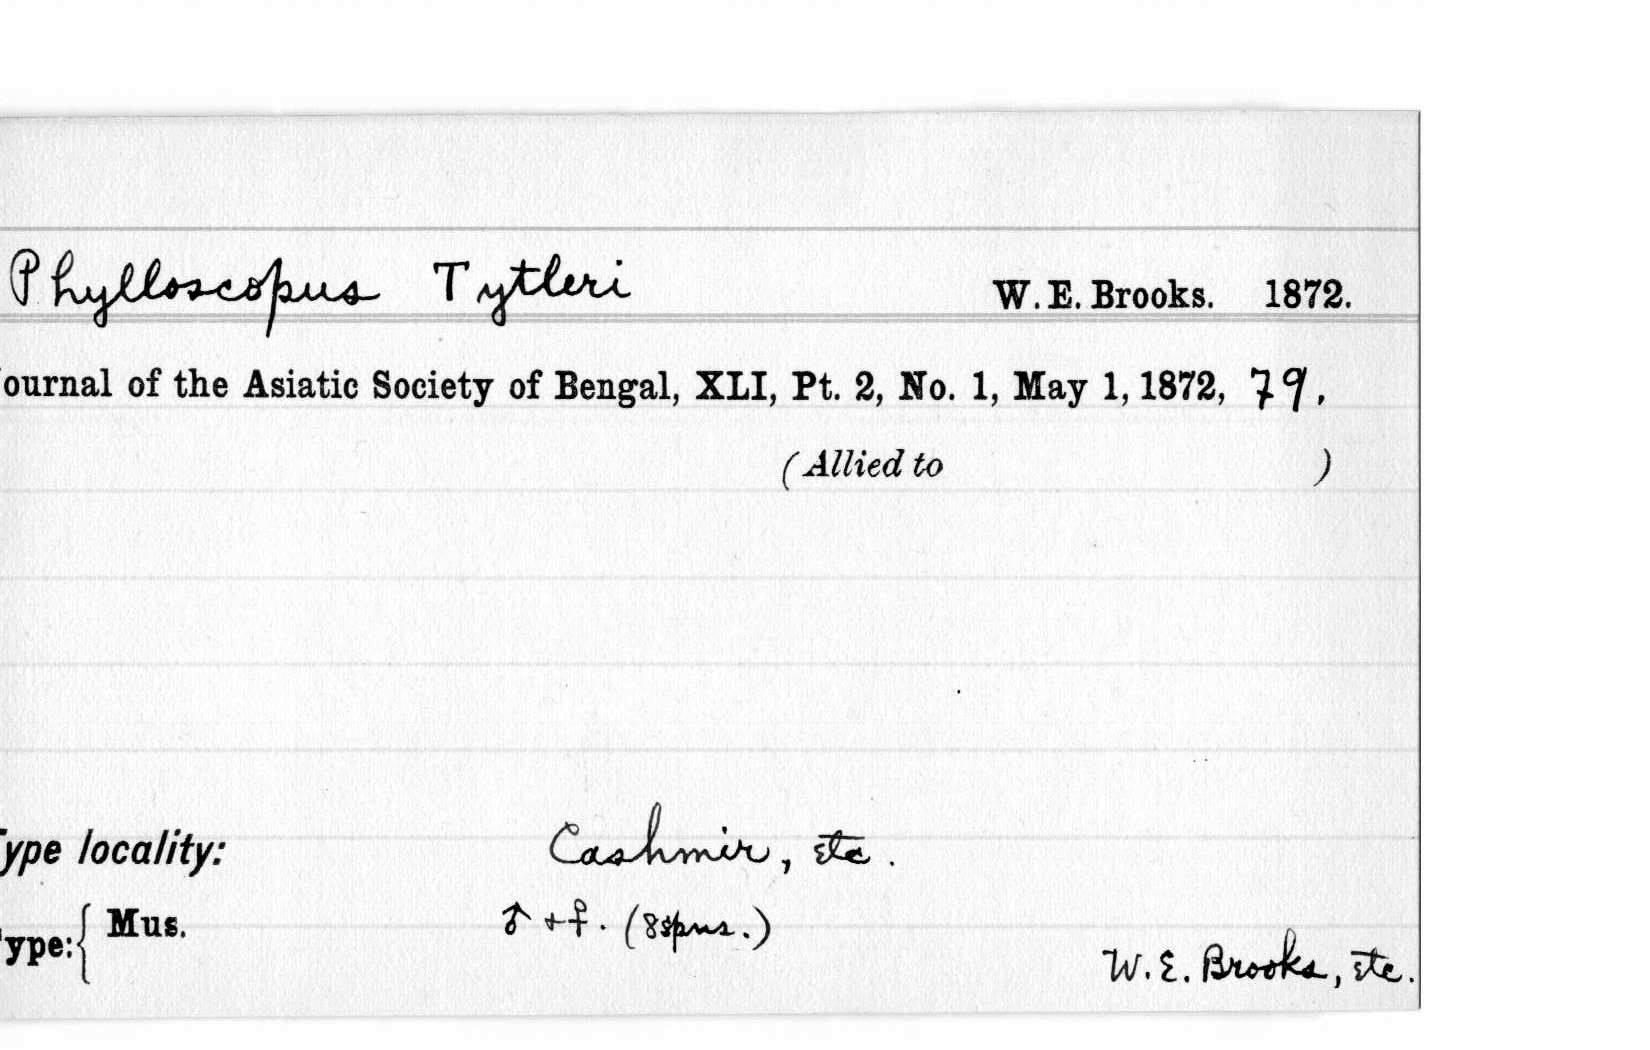 Phylloscopus Tytleri W. E. Brooks. 1872.
ournal of the Asiatic Society of Bengal, XLI, Pt. 2, No. 1, May 1, 1872, 79.
(Allied to )
Type locality: Cashmir, etc.
Type: { Mus. ♂ + ♀. (8 spns.)
W. E. Brooks, etc.